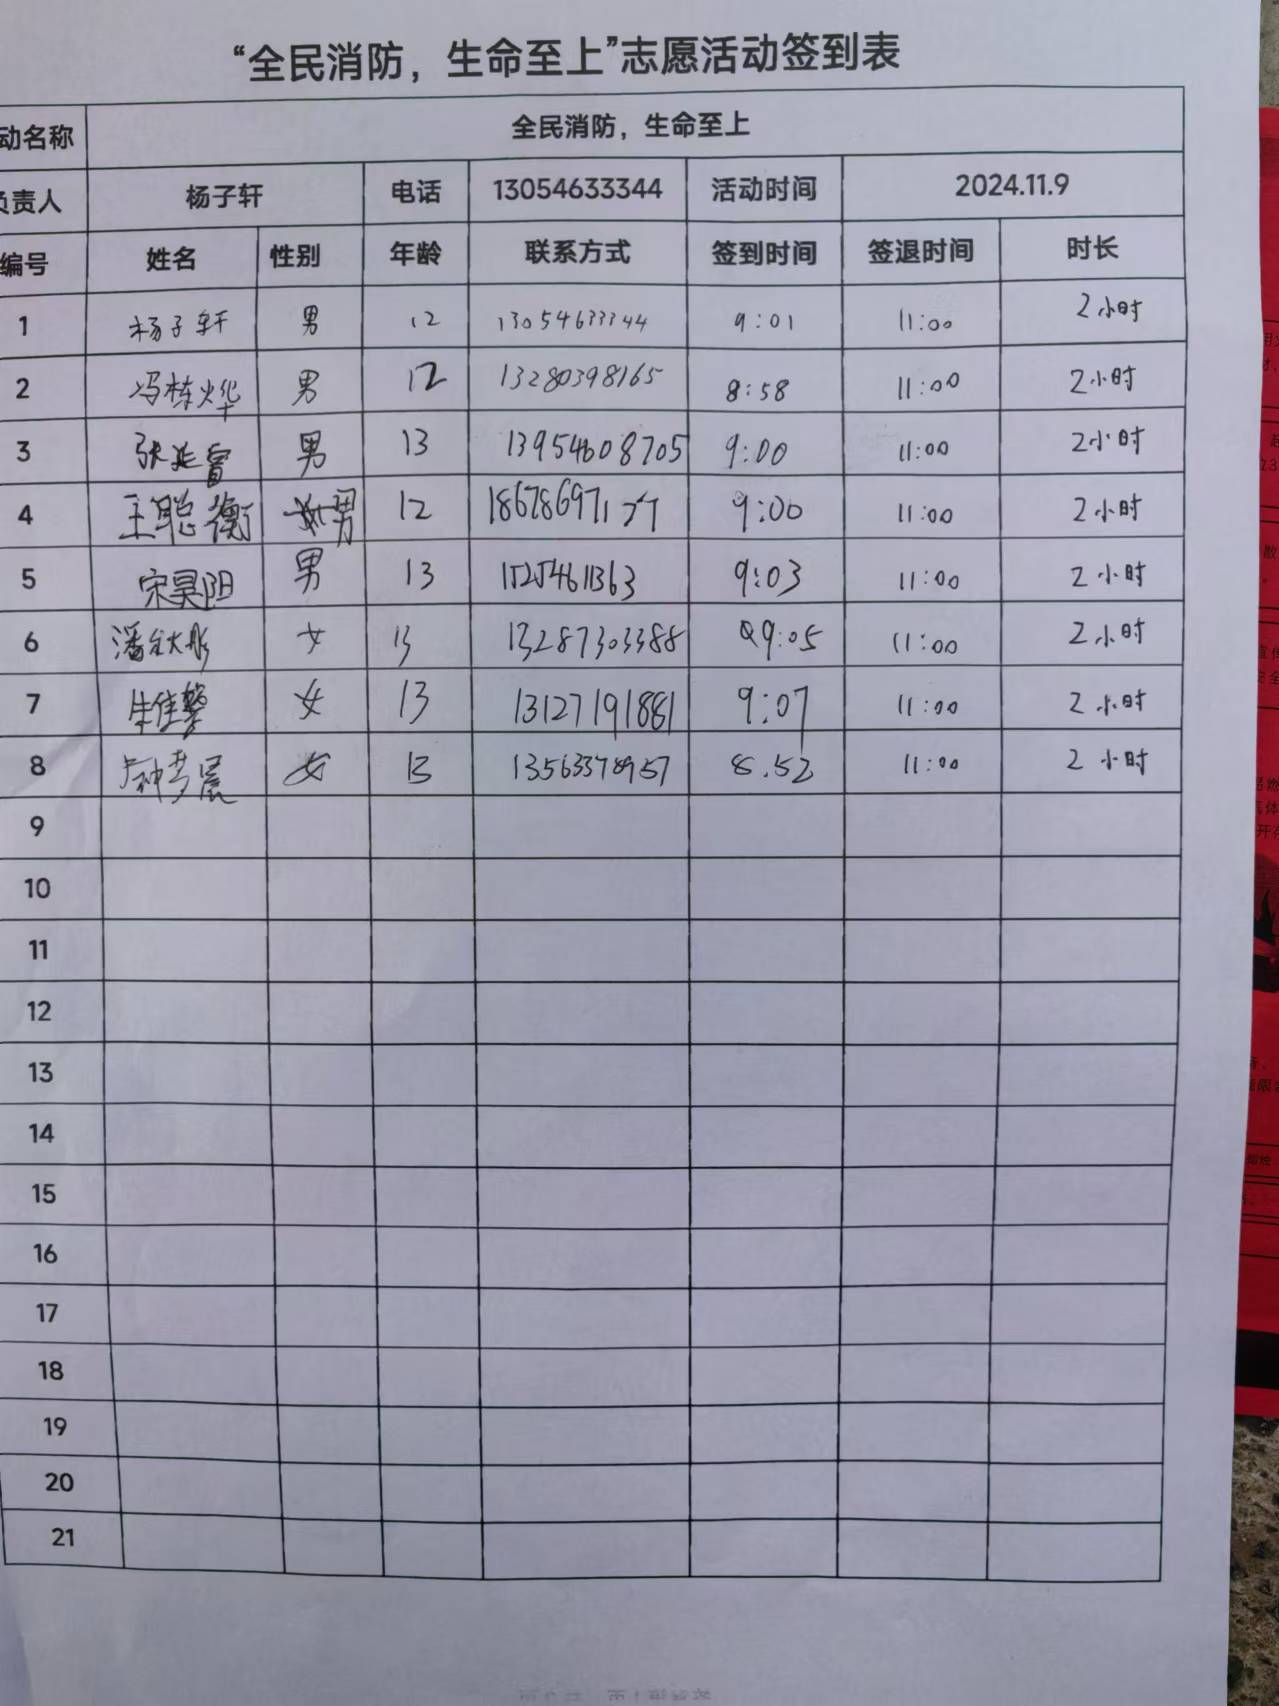 “全民消防，生命至上”志愿活动签到表
动名称 全民消防，生命至上
负责人 杨子轩 电话 13054633344 活动时间 2024.11.9
编号 姓名 性别 年龄 联系方式 签到时间 签退时间 时长
1 杨子轩 男 12 13054633344 9:01 11:00 2小时
2 冯栋烨 男 12 13280398165 8:58 11:00 2小时
3 男 13 13954608705 9:00 11:00 2小时
4 王聪衡 男 12 9:00 11:00 2小时
5 宋昊阳 男 13 15254611363 9:03 11:00 2小时
6 女 13 13287303388 9:05 11:00 2小时
7 牛佳馨 女 13 13127191881 9:07 11:00 2小时
8 女 13 13563378957 8.52 11:00 2小时
9
10
11
12
13
14
15
16
17
18
19
20
21